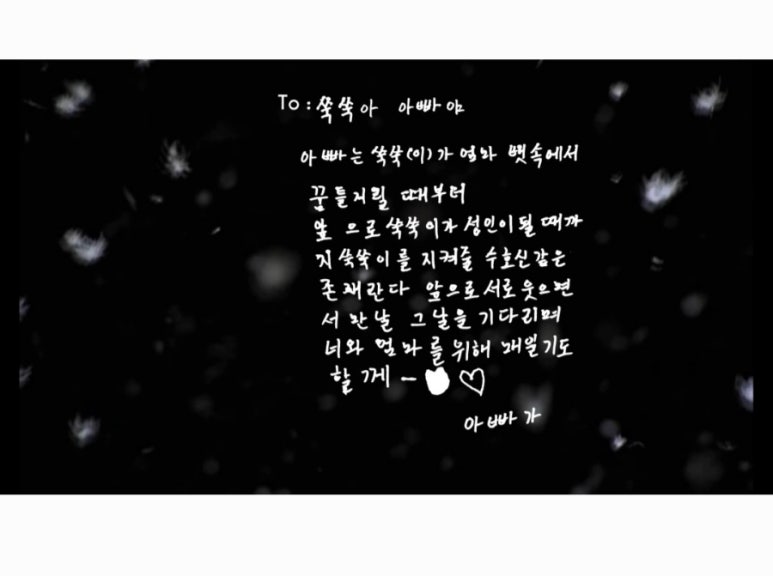 To : 쑥쑥아 아빠야
아빠는 쑥쑥(이)가 엄마 뱃속에서
꿈틀거릴 때부터
앞 으로 쑥쑥이가 성인이될 때까
지 쑥쑥이를 지켜줄 수호신같은
존재란다 앞으로서로웃으면
서 만날 그날을 기다리며
너와 엄마를 위해 매일기도
할께 ㅡ
아빠가